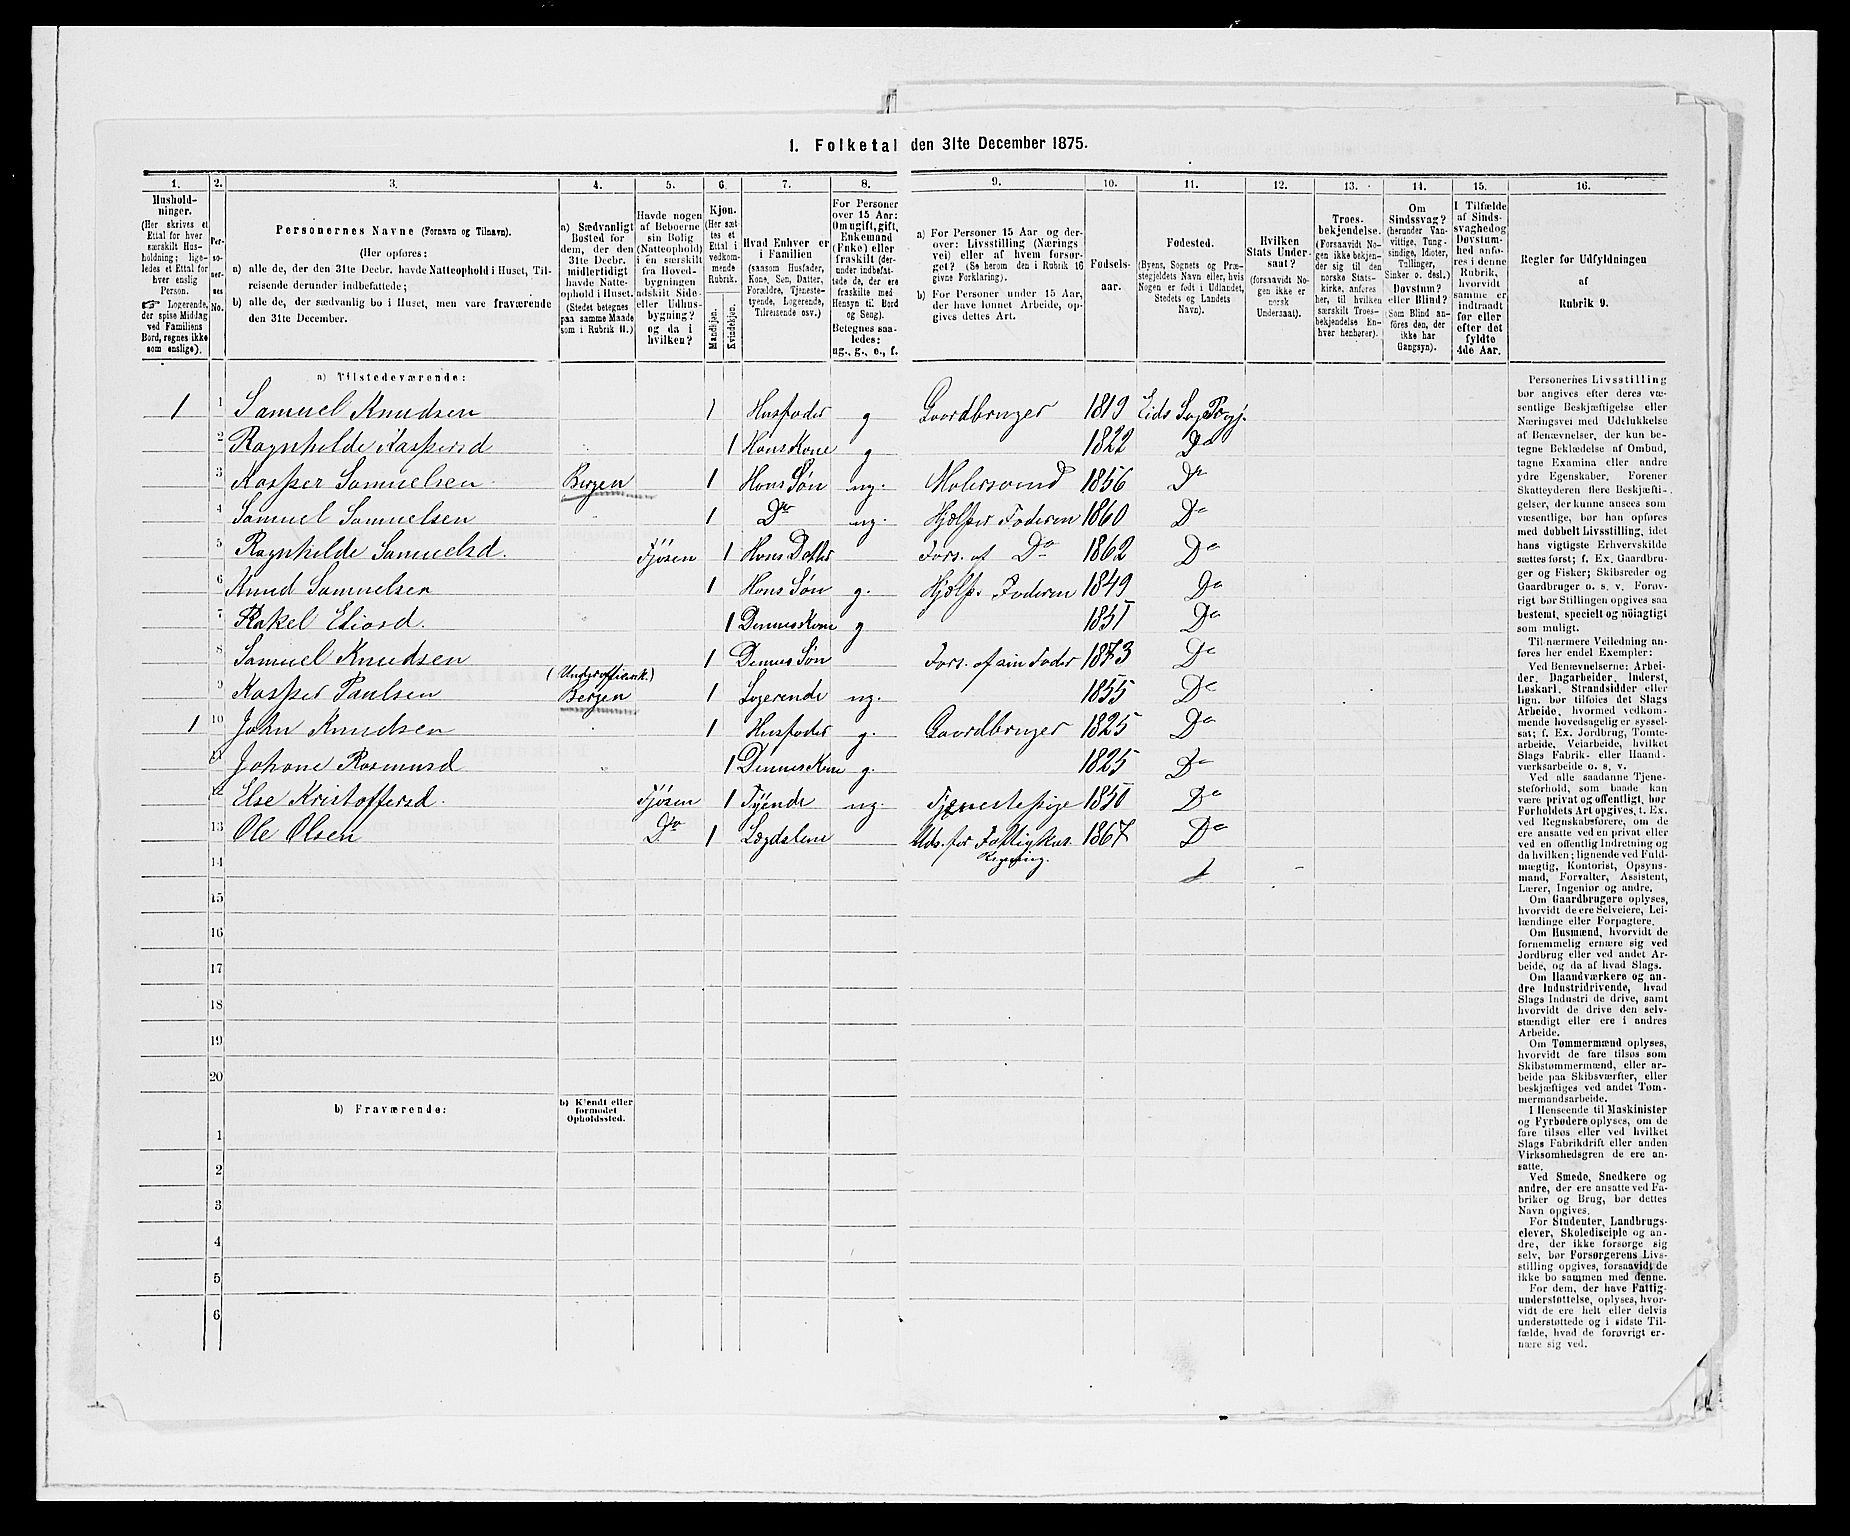 1. Folketal den 31te December 1875.
1. 2. 3. 4. 5. 6. 7. 8. 9. 10. 11. 12. 13. 14. 15. 16.
Hushold-
ninger.
(Her skrives et
Ettal for hver
særskilt Hus-
holdning; lige-
ledes et Ettal for
hver enslig
Person.
☞ Logerende,
der spise Middag
ved Familiens
Bord, regnes ikke
som enslige).
Per-
soner-
nes
No.
Personernes Navne (Fornavn og Tilnavn).
(Her opføres:
a) alle de, der den 31te Decbr. havde Natteophold i Huset, Til-
reisende derunder indbefattede;
b) alle de, der sædvanlig bo i Huset, men vare fraværende
den 31te December.
a) Sædvanligt
Bosted for
dem, der den
31te Decbr.
midlertidigt
havde Natte-
ophold i Huset.
(Stedet betegnes
paa samme Maade
som i Rubrik 11.)
Havde nogen
af Beboerne
sin Bolig
(Natteophold)
i en særskilt
fra Hoved-
bygningen
adskilt Side-
eller Udhus-
bygning?
og da i
hvilken?
Kjøn.
(Her sæt-
tes et
Ettal i
vedkom-
mende
Rubrik.
Mandkjøn.
Kvindekjøn.
Hvad Enhver er
i Familien
(saasom Husfader,
Kone, Søn, Datter,
Forældre, Tjeneste-
tyende, Logerende,
Tilreisende osv.)
For Personer
over 15 Aar:
Om ugift, gift,
Enkemand
(Enke) eller
fraskilt (der-
under indbefat-
tede de, der ere
fraskilte med
Hensyn til Bord
og Seng).
Betegnes saa-
ledes:
ug., g., e., f.
a) For Personer 15 Aar og der-
over: Livsstilling (Nærings
vei) eller af hvem forsør-
get? (Se herom den i Rubrik 16
givne Forklaring).
b) For Personer under 15 Aar,
der have lønnet Arbeide, op-
gives dettes Art.
Fødsels-
aar.
Fødested.
(Byens, Sognets og Præ-
stegjeldets Navn eller, hvis
Nogen er født i Udlandet,
Stedets og Landets
Navn).
Hvilken
Stats Under-
saat?
(forsaavidt No-
gen ikke er
norsk
Undersaat).
Troes-
bekjendelse.
(Forsaavidt No-
gen ikke bekjen-
der sig til den
norske Stats-
kirke, anføres
her, til hvilken
særskilt Troes-
bekjendelse En-
hver henhører).
Om
Sindssvag?
(herunder Van-
vittige, Tung-
sindige, Idioter,
Tullinger,
Sinker o. desl.)
Døvstum?
eller Blind?
(Som Blind an-
føres den, der
ikke har
Gangsyn).
I Tilfælde
af Sinds-
svaghed og
Døvstum-
hed anfø-
res i denne
Rubrik,
hvorvidt
samme er
indtraadt
før eller
efter det
fyldte
4de Aar.
Regler for Udfyldningen
af
Rubrik 9.
a) Tilstedeværende:
1 1 Samuel Knudsen 1 Husfader g Gaardbruger 1819 Eids
2 Ragnhilde Kaspersd 1 Hans Kone g 1822 Do
3 Kasper Samuelsen Bergen 1 Hans Søn ug. Malersvend 1856 Do
4 Samuel Samuelsen 1 Do ug. Hjælper Faderen 1860 Do
5 Ragnhilde Samuelsd. Fjøsen 1 Hans Datter Fors. af Do 1862 Do
6 Knud Samuelsen 1 Hans Søn g. Hjælp. Faderen 1849 Do
7 Rakel Eliasd. 1 Dennes Kone g 1851 Do
8 Samuel Knudsen 1 Dennes Søn Fors. af sin Fader 1873 Do
9 Kasper Paulsen (Underofficersk.) Bergen 1 Logerende ug. 1855 Do
1 10 John Knudsen 1 Husfader g. Gaardbruger 1825 Do
11 Johane Rasmusd 1 Dennes Kone g. 1825 Do
12 Else Kristoffersd. Fjøsen 1 Tyende ug. Tjenestepige 1850 Do
13 Ole Olsen Do 1 Lægdslem Uds. for Fattigkas. Regning. 1867 Do
14
15
16
17
18
19
20
b) Fraværende:
b) Kjendt eller
formodet
Opholdssted.
1
2
3
4
5
6
Personernes Livsstilling
bør angives efter deres væ-
sentlige Beskjæftigelse eller
Næringsvei med Udelukkelse
af Benævnelser, der kun be-
tegne Beklædelse af Ombud,
tagne Examina eller andre
ydre Egenskaber. Forener
Skatteyderen flere Beskjæfti-
gelser, der kunne ansees som
væsentlige, bør han opføres
med dobbelt Livsstilling, idet
hans vigtigste Erhvervskilde
sættes først; f. Ex. Gaardbru-
ger og Fisker; Skibsreder og
Gaardbruger o. s. v. Forøv-
rigt bør Stillingen opgives saa
bestemt, specielt og nøiagtigt
som muligt.
Til nærmere Veiledning an-
føres her endel Exempler:
Ved Benævnelserne: Arbei-
der, Dagarbeider, Inderst,
Løskarl, Strandsidder eller
lign. bør tilføies det Slags
Arbeide, hvormed vedkom-
mende hovedsagelig er syssel-
sat; f. Ex. Jordbrug, Tomte-
arbeide, Veiarbeide, hvilket
Slags Fabrik- eller Haand-
værksarbeide o. s. v.
Ved alle saadanne Tjene-
steforhold, som baade kan
være privat og offentligt, bør
Forholdets Art opgives, t. Ex.
ved Regnskabsførere, om de
ere ansatte ved en privat eller
ved en offentlig Indretning og
da hvilken; lignende ved Fuld-
mægtig, Kontorist, Opsyns-
mand, Forvalter, Assistent,
Lærer, Ingeniør og andre.
Om Gaardbrugere oplyses,
hvorvidt de ere Selveiere, Lei-
lændinge eller Forpagtere.
Om Husmænd, hvorvidt de
fornemmelig ernære sig ved
Jordbrug eller ved andet Ar-
beide, og da af hvad Slags.
Om Haandværkere og an-
dre Industridrivende, hvad
Slags Industri de drive, samt
hvorvidt de drive den selv-
stændigt eller ere i andres
Arbeide.
Om Tømmermænd oplyses,
hvorvidt de fare tilsøs som
Skibstømmermænd, eller ar-
beide paa Skibsværfter, eller
beskjæftiges ved andet Tøm-
mermandsarbeide.
I Henseende til Maskinister
og Fyrbødere oplyses, om de
fare tilsøs eller ved hvilket
Slags Fabrikdrift eller anden
Virksomhedsgren de ere an-
satte.
Ved Smede, Snedkere og
andre, der ere ansatte ved Fa-
briker og Brug, bør dettes
Navn opgives.
For Studenter, Landbrugs-
elever, Skoledisciple og an-
dre, der ikke forsørge sig
selv, bør Forsørgerens Livs-
stilling opgives, forsaavidt de
ikke bo sammen med denne.
For dem, der have Fattig-
understøttelse, oplyses, hvor-
vidt de ere helt eller delvis
understøttede og i sidste Til-
fælde, hvad de forøvrigt er-
nære sig ved.